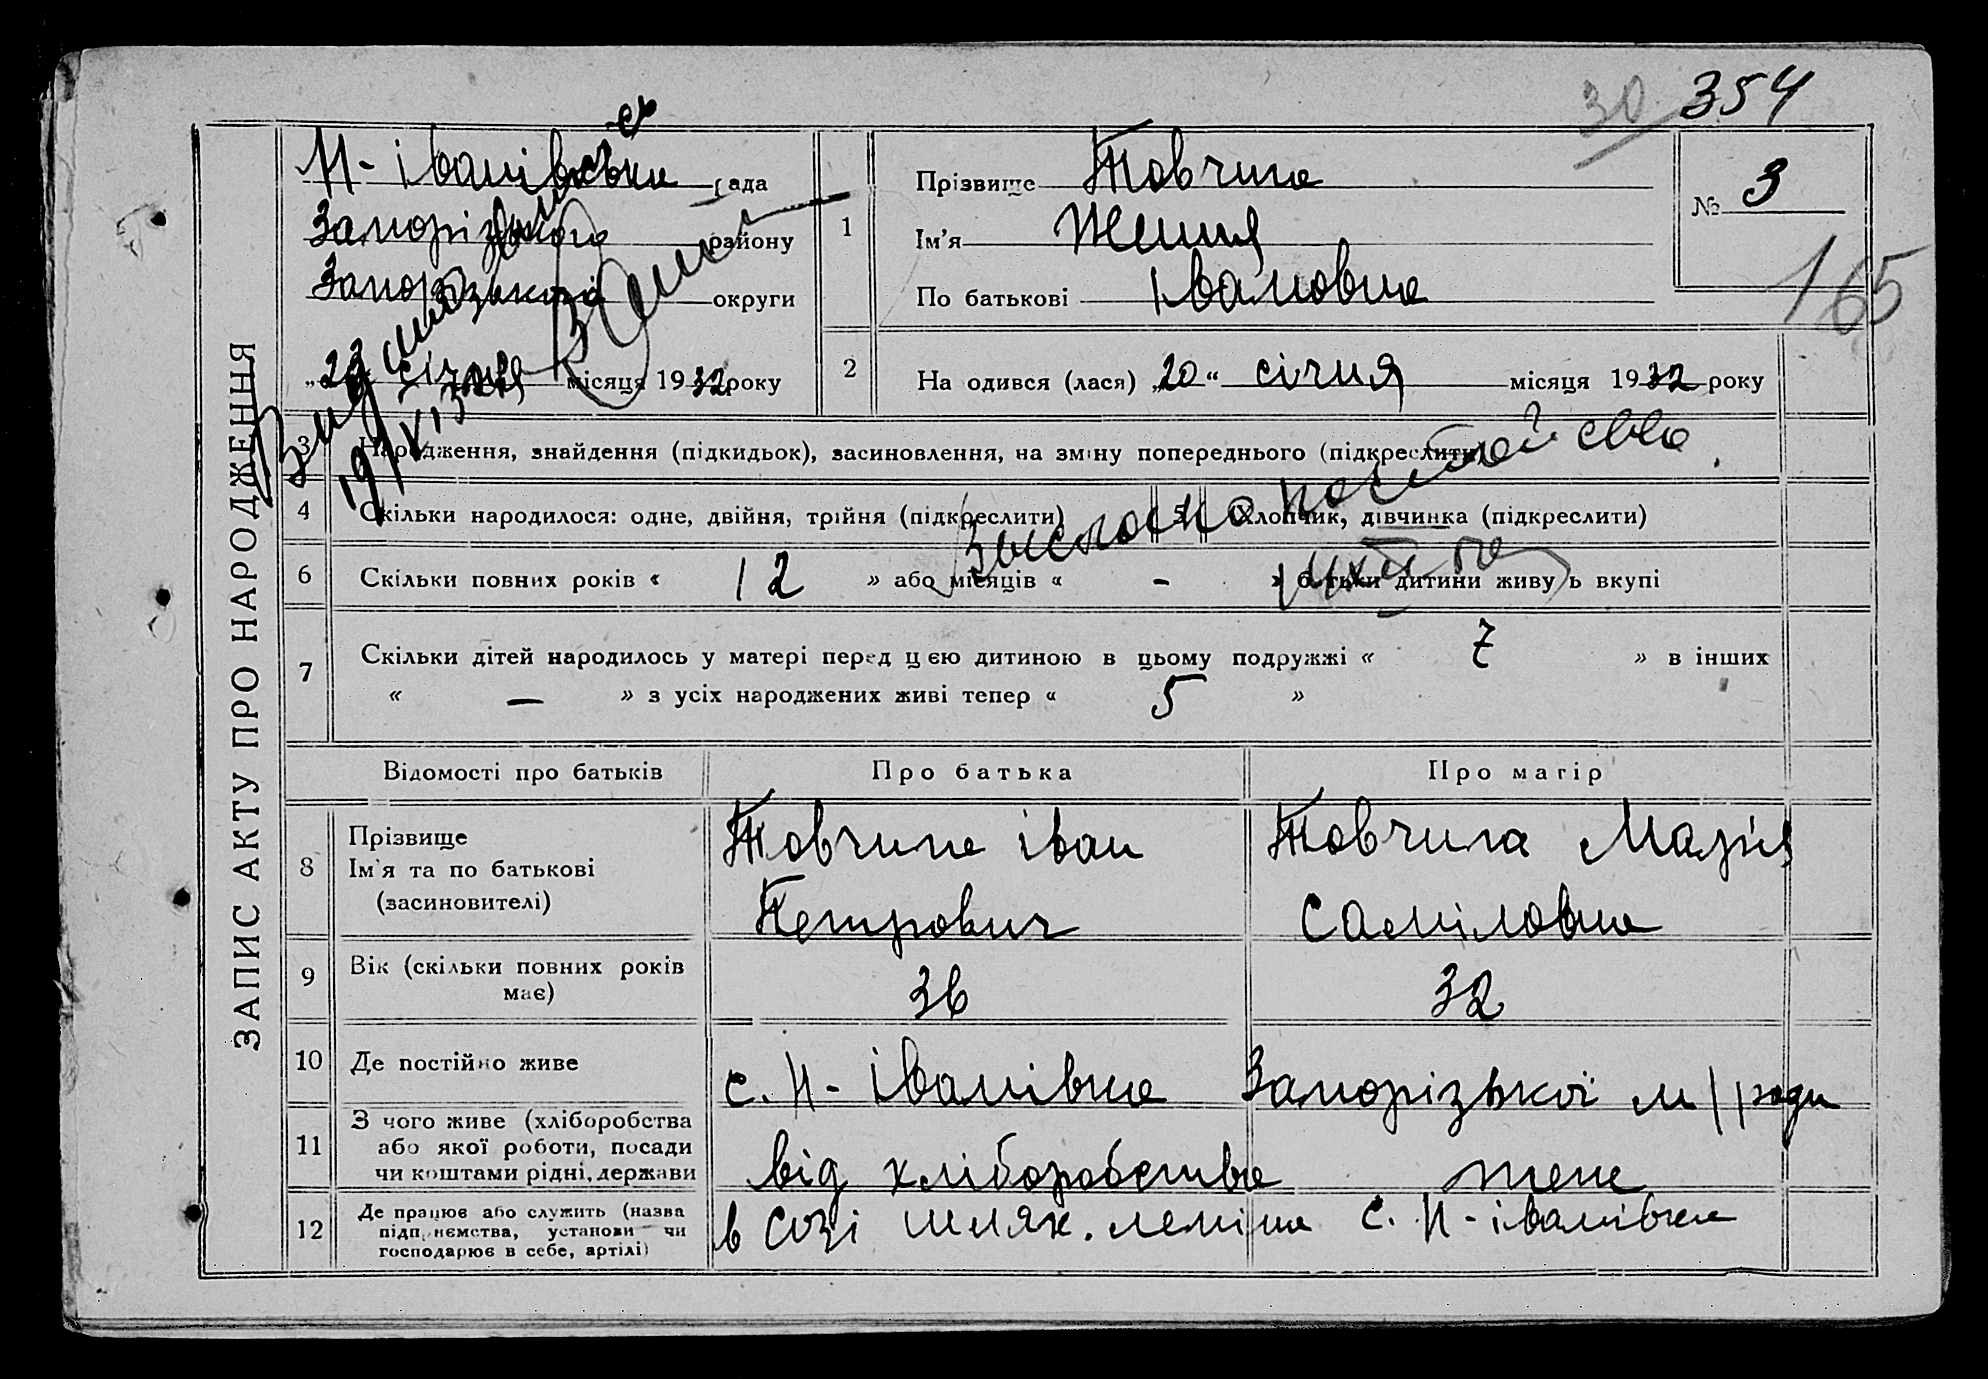 30 354
Н-Іванівська рада
Запорізького району
Запорізької округи
„23 січня місяця 1932 року
1
Прізвище Товчига
Ім'я Женя
По батькові Івановна
№ 3
165
2
На одився (лася) „20“ січня місяця 1932 року
ЗАПИС АКТУ ПРО НАРОДЖЕННЯ
3 Народження, знайдення (підкидьок), засиновлення, на зміну попереднього (підкреслити)
4 Скільки народилося: одне, двійня, трійня (підкреслити) 5 Хлопчик, дівчинка (підкреслити)
6 Скільки повних років « 12 » або місяців « - » батьки дитини живуть вкупі
7 Скільки дітей народилось у матері перед цею дитиною в цьому подружжі « 7 » в інших
« — » з усіх народжених живі тепер « 5 »
Відомості про батьків Про батька Про матір
8 Прізвище
Ім'я та по батькові
(засиновителі)
Товчига Іван
Петрович
Товчига Марія
Саміловна
9 Вік (скільки повних років
має)
36 32
10 Де постійно живе
с. Н-Іванівка Запорізької м/ради
11 З чого живе (хліборобства
або якої роботи, посади
чи коштами рідні, держави
від хліборобства теж
12 Де працює або служить (назва
підприємства, установи чи
господарює в себе, артілі)
в созі шлях. леніна с. Н-Іванівка